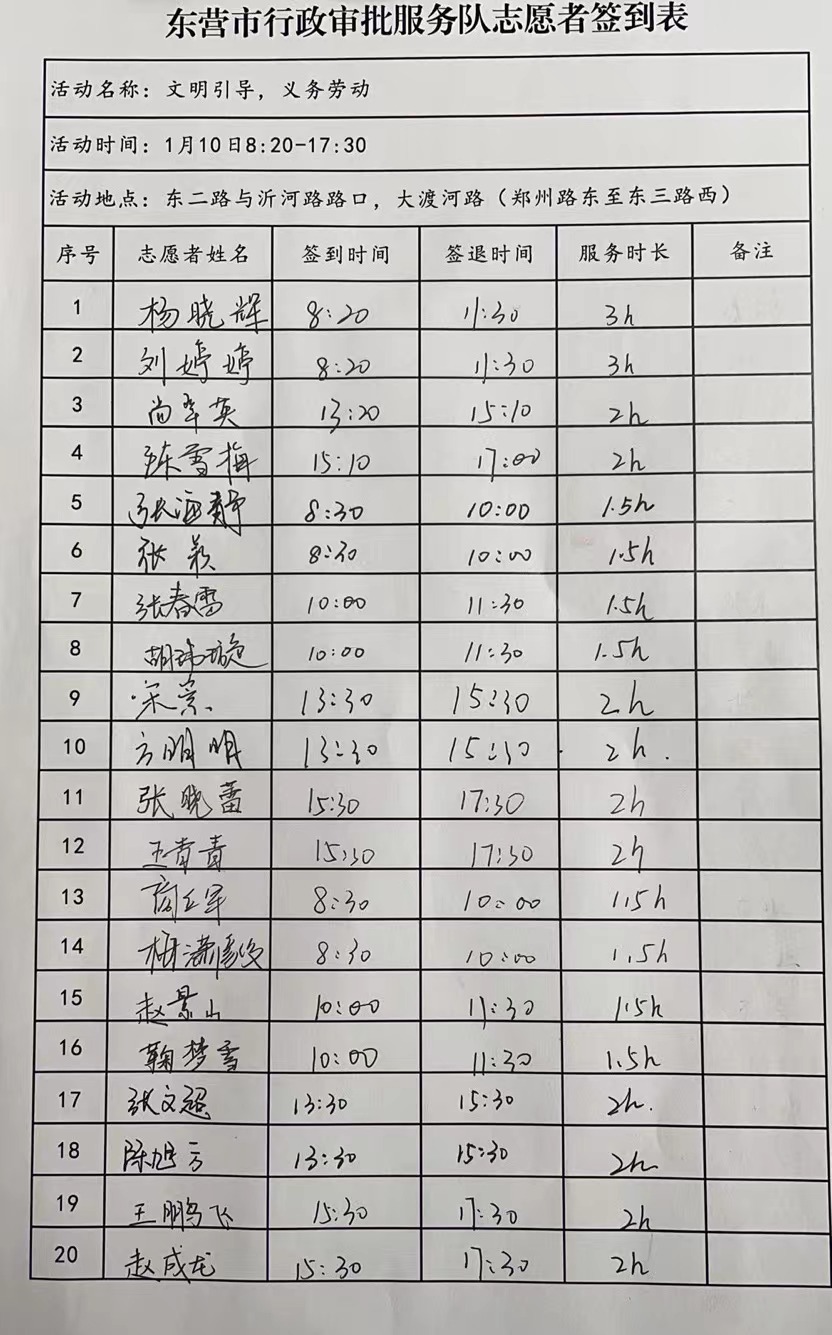 东营市行政审批服务队志愿者签到表
活动名称：文明引导，义务劳动
活动时间：1月10日8:20-17:30
活动地点：东二路与沂河路路口，大渡河路（郑州路东至东三路西）
序号 志愿者姓名 签到时间 签退时间 服务时长 备注
1 杨晓辉 8:20 11:30 3h
2 刘婷婷 8:20 11:30 3h
3 尚翠英 13:20 15:10 2h
4 陈雪梅 15:10 17:00 2h
5 张海静 8:30 10:00 1.5h
6 张颖 8:30 10:00 1.5h
7 张春雷 10:00 11:30 1.5h
8 胡玮璇 10:00 11:30 1.5h
9 13:30 15:30 2h
10 方明明 13:30 15:30 2h.
11 张晓蕾 15:30 17:30 2h
12 王青青 15:30 17:30 2h
13 8:30 10:00 1.5h
14 8:30 10:00 1.5h
15 赵景山 10:00 11:30 1.5h
16 鞠梦雪 10:00 11:30 1.5h
17 张文超 13:30 15:30 2h.
18 陈旭方 13:30 15:30 2h
19 王鹏飞 15:30 17:30 2h
20 赵成龙 15:30 17:30 2h